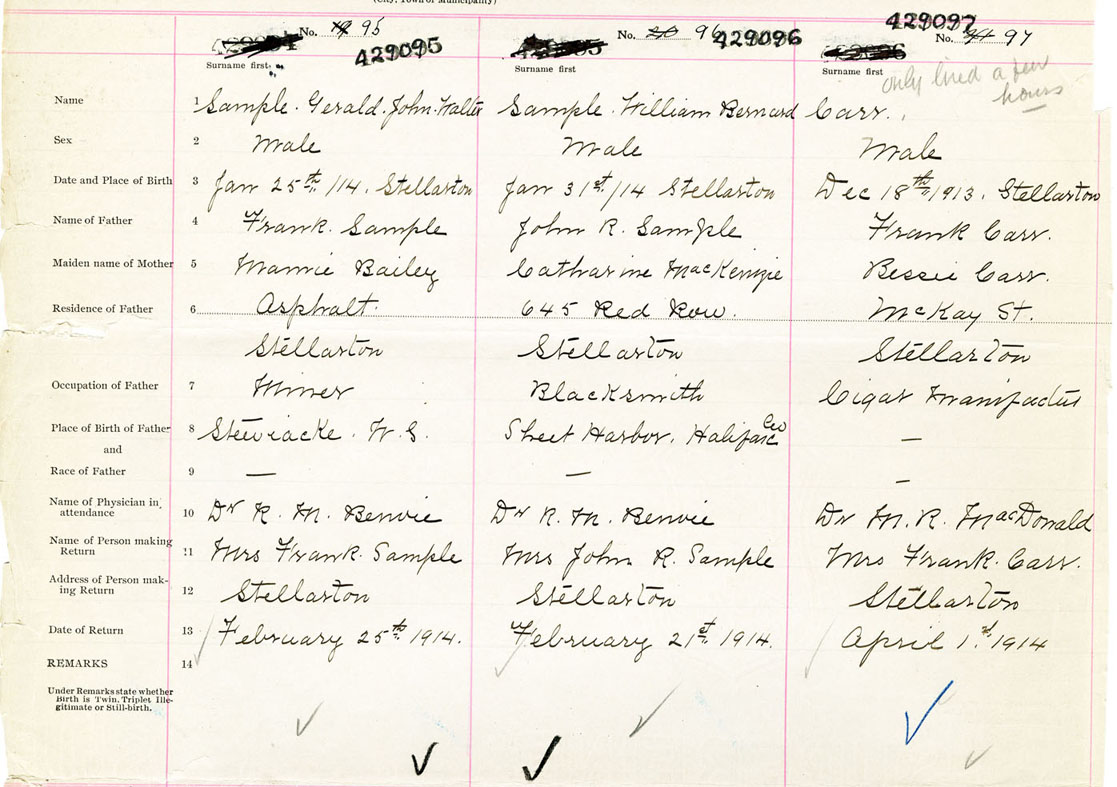 (City, Town or Municipality)
No. 19 95 429095
No. 20 96 429096
429097
No. 97
Surname first
Surname first
Surname first
only lived a few
hours
Name 1 Sample. Gerald. John. Walter Sample. William Bernard Carr.
Sex 2 Male Male Male
Date and Place of Birth 3 Jan 25th /14. Stellarton Jan 31st /14 Stellarton Dec 18th 1913. Stellarton
Name of Father 4 Frank. Sample John R. Sample Frank Carr.
Maiden name of Mother 5 Mamie Bailey Catharine MacKenzie Bessie Carr.
Residence of Father 6 Asphalt. 645 Red Row. McKay St.
Stellarton Stellarton Stellarton
Occupation of Father 7 Miner Blacksmith Cigar
Place of Birth of Father 8 Stewiacke. N.S. Sheet Harbor. Halifax Co —
and
Race of Father 9 — — —
Name of Physician in
attendance 10 Dr R. M. Benvie Dr R. M. Benvie Dr M. R. MacDonald
Name of Person making
Return 11 Mrs Frank. Sample Mrs John R. Sample Mrs Frank. Carr.
Address of Person mak-
ing Return 12 Stellarton Stellarton Stellarton
Date of Return 13 February 25th 1914. February 21st 1914. April 1st 1914
REMARKS 14
Under Remarks state whether
Birth is Twin, Triplet Ille-
gitimate or Still-birth.